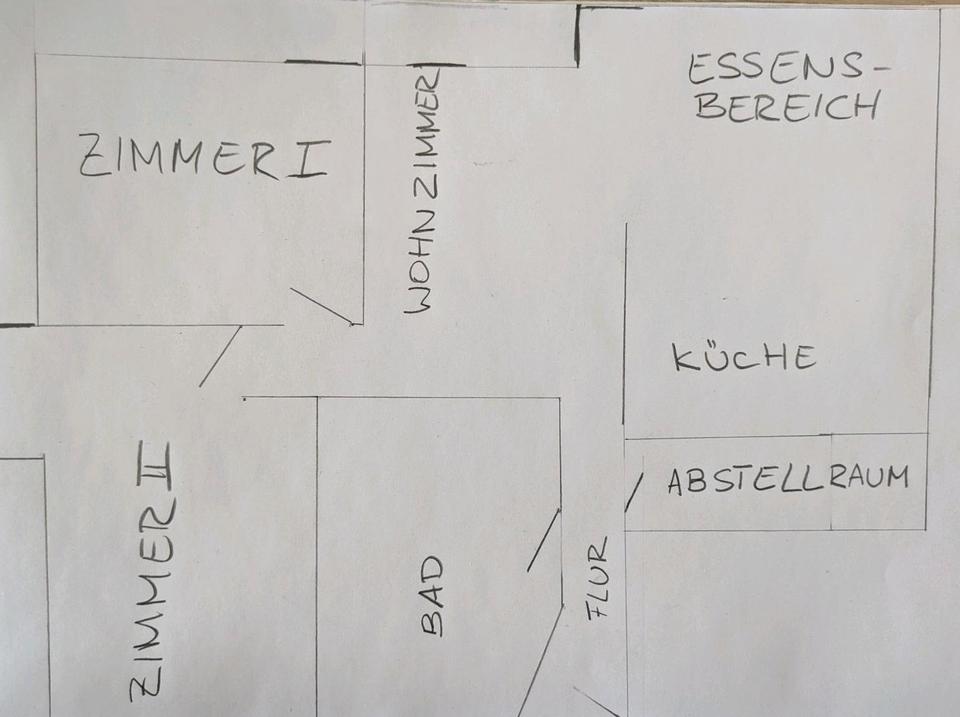 ESSENS-
BEREICH
ZIMMER I
WOHNZIMMER
KÜCHE
ABSTELLRAUM
ZIMMER II
BAD
FLUR